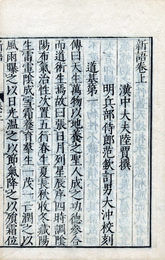 新語卷上
漢中大夫陸賈撰
明兵部侍郎范欽訂男大沖校刻
道基第一
傳曰天生萬物以地養之聖人成之功德參合
而道術生焉故曰張日月列星辰序四時調陰
陽布氣治性次置五行春生夏長秋收冬藏陽
生雷電陰成霜雪養育羣生一茂一亡潤之以
風雨曝之以日光溫之以節氣降之以殞霜位